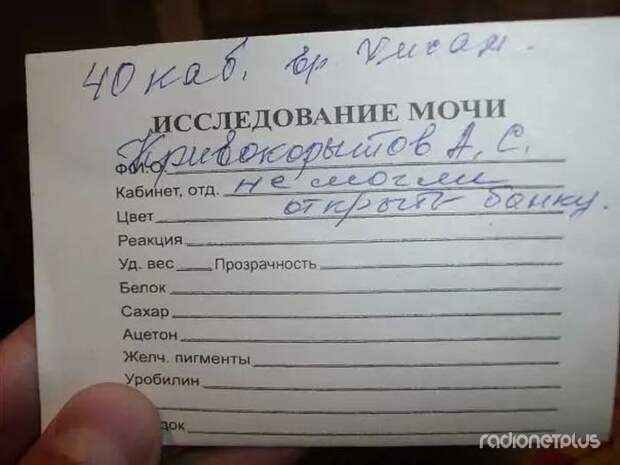 40 каб. вр
ИССЛЕДОВАНИЕ МОЧИ
Ф.И.О. Кривокорытов А. С.
Кабинет, отд. не могли
Цвет открыть банку.
Реакция
Уд. вес Прозрачность
Белок
Сахар
Ацетон
Желч. пигменты
Уробилин
радок
radionetplus